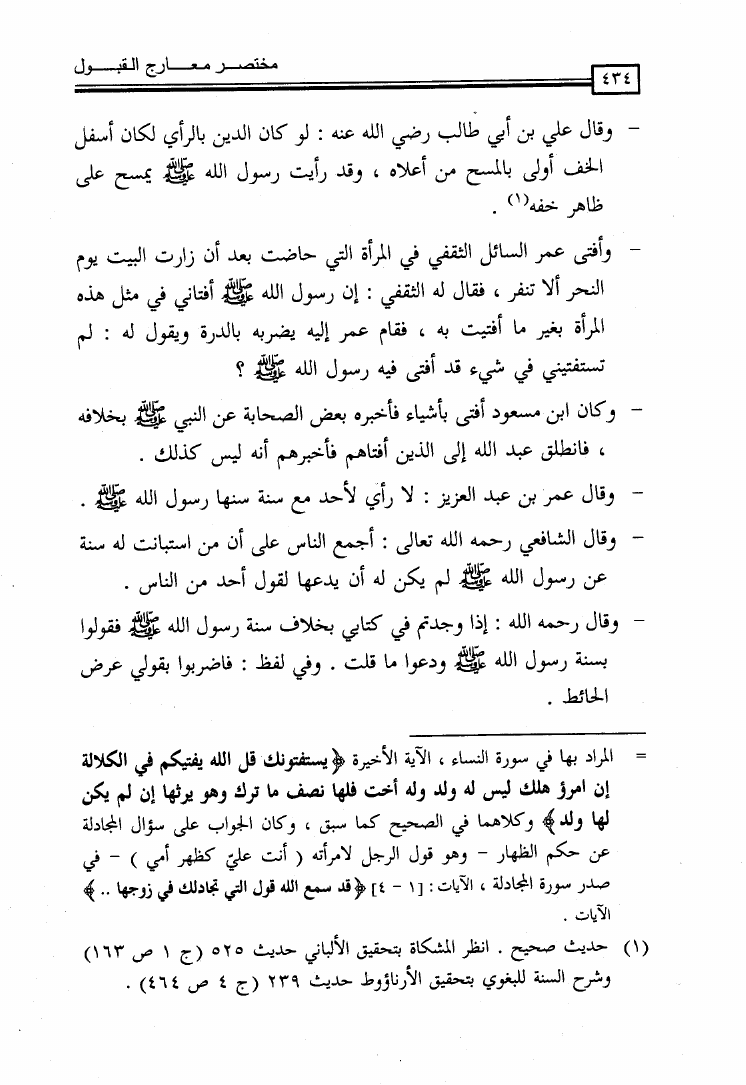 مختصر معارج القبول
٤٣٤
– وقال علي بن أبي طالب رضي الله عنه : لو كان الدين بالرأي لكان أسفل
الخف أولى بالمسح من أعلاه ، وقد رأيت رسول الله ﷺ يمسح على
ظاهر خفه(١) .
– وأفتى عمر السائل الثقفي في المرأة التي حاضت بعد أن زارت البيت يوم
النحر ألا تنفر ، فقال له الثقفي : إن رسول الله ﷺ أفتاني في مثل هذه
المرأة بغير ما أفتيت به ، فقام عمر إليه يضربه بالدرة ويقول له : لم
تستفتيني في شيء قد أفتى فيه رسول الله ﷺ ؟
– وكان ابن مسعود أفتى بأشياء فأخبره بعض الصحابة عن النبي ﷺ بخلافه
، فانطلق عبد الله إلى الذين أفتاهم فأخبرهم أنه ليس كذلك .
– وقال عمر بن عبد العزيز : لا رأي لأحد مع سنة سنها رسول الله ﷺ .
– وقال الشافعي رحمه الله تعالى : أجمع الناس على أن من استبانت له سنة
عن رسول الله ﷺ لم يكن له أن يدعها لقول أحد من الناس .
– وقال رحمه الله : إذا وجدتم في كتابي بخلاف سنة رسول الله ﷺ فقولوا
بسنة رسول الله ﷺ ودعوا ما قلت . وفي لفظ : فاضربوا بقولي عرض
الحائط .
= المراد بها في سورة النساء ، الآية الأخيرة ﴿يستفتونك قل الله يفتيكم في الكلالة
إن امرؤ هلك ليس له ولد وله أخت فلها نصف ما ترك وهو يرثها إن لم يكن
لها ولد﴾ وكلاهما في الصحيح كما سبق ، وكان الجواب على سؤال المجادلة
عن حكم الظهار – وهو قول الرجل لامرأته ( أنت عليّ كظهر أمي ) – في
صدر سورة المجادلة ، الآيات : [١ – ٤] ﴿قد سمع الله قول التي تجادلك في زوجها ..﴾
الآيات .
(١) حديث صحيح . انظر المشكاة بتحقيق الألباني حديث ٥٢٥ (ج ١ ص ١٦٣)
وشرح السنة للبغوي بتحقيق الأرناؤوط حديث ٢٣٩ (ج ٤ ص ٤٦٤) .